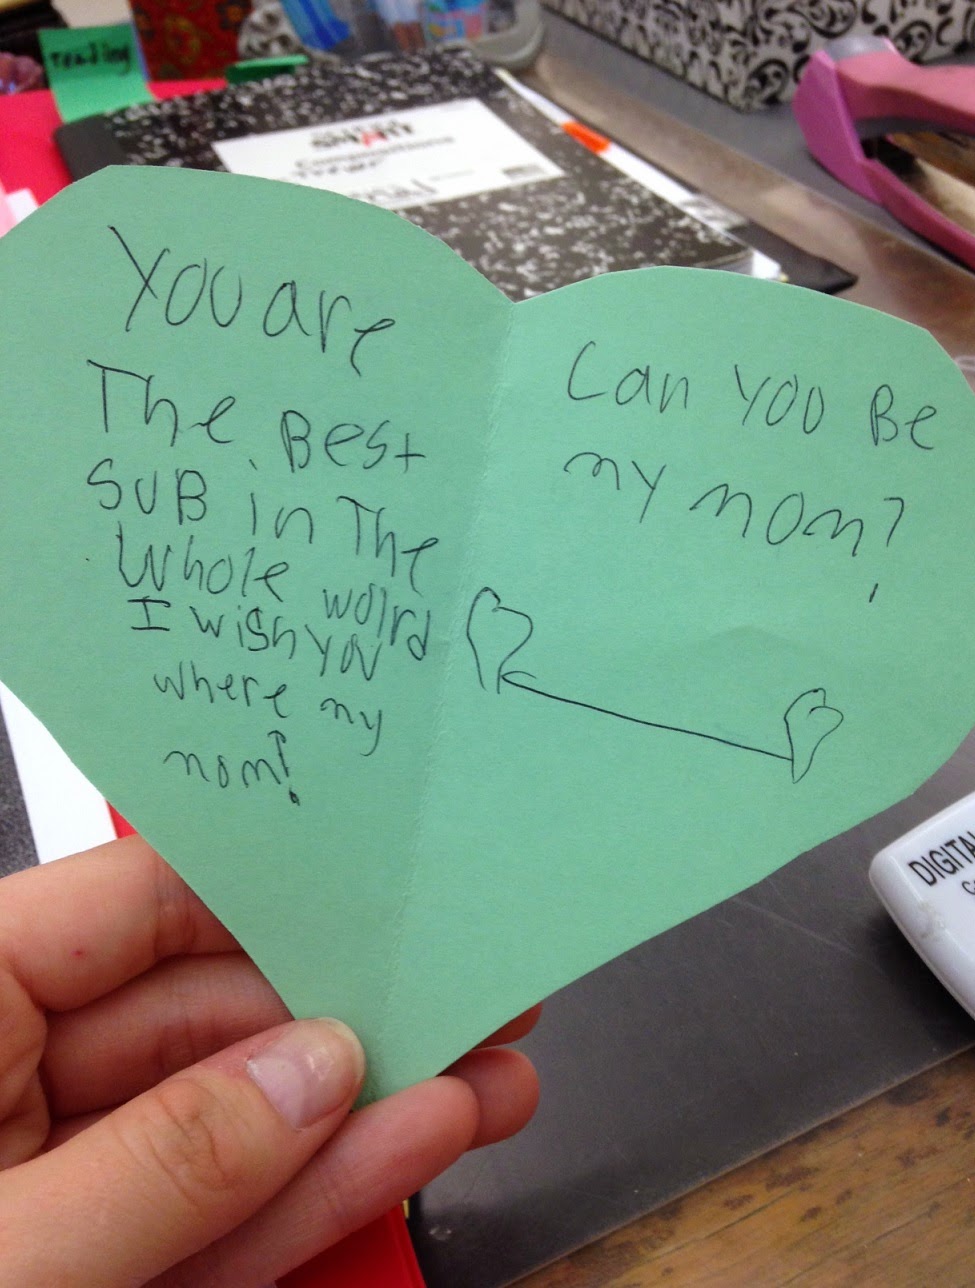 reading
SMART
Compositions
You are
The Best
SUB in The
Whole wolrd
I wish you
where my
mom!
Can you Be
my mom?
DIGITA